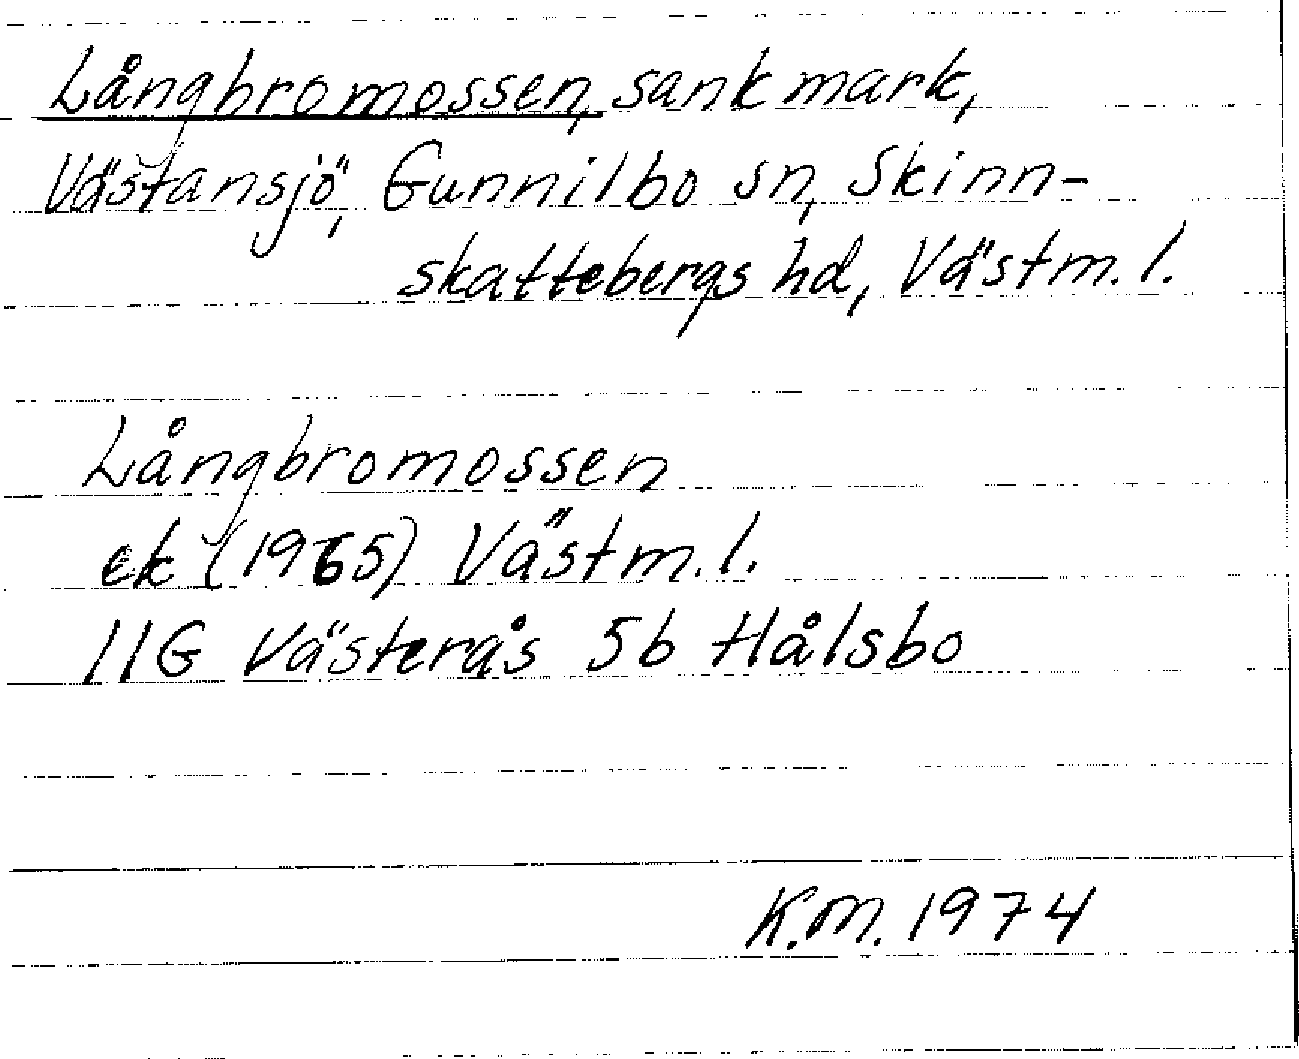 Långbromossen, sank mark,
Västansjö, Gunnilbo sn, Skinn-
skattebergs hd, Västm. l.
Långbromossen
ek (1965) Västm. l.
11G Västerås 5b Hålsbo
K.M. 1974